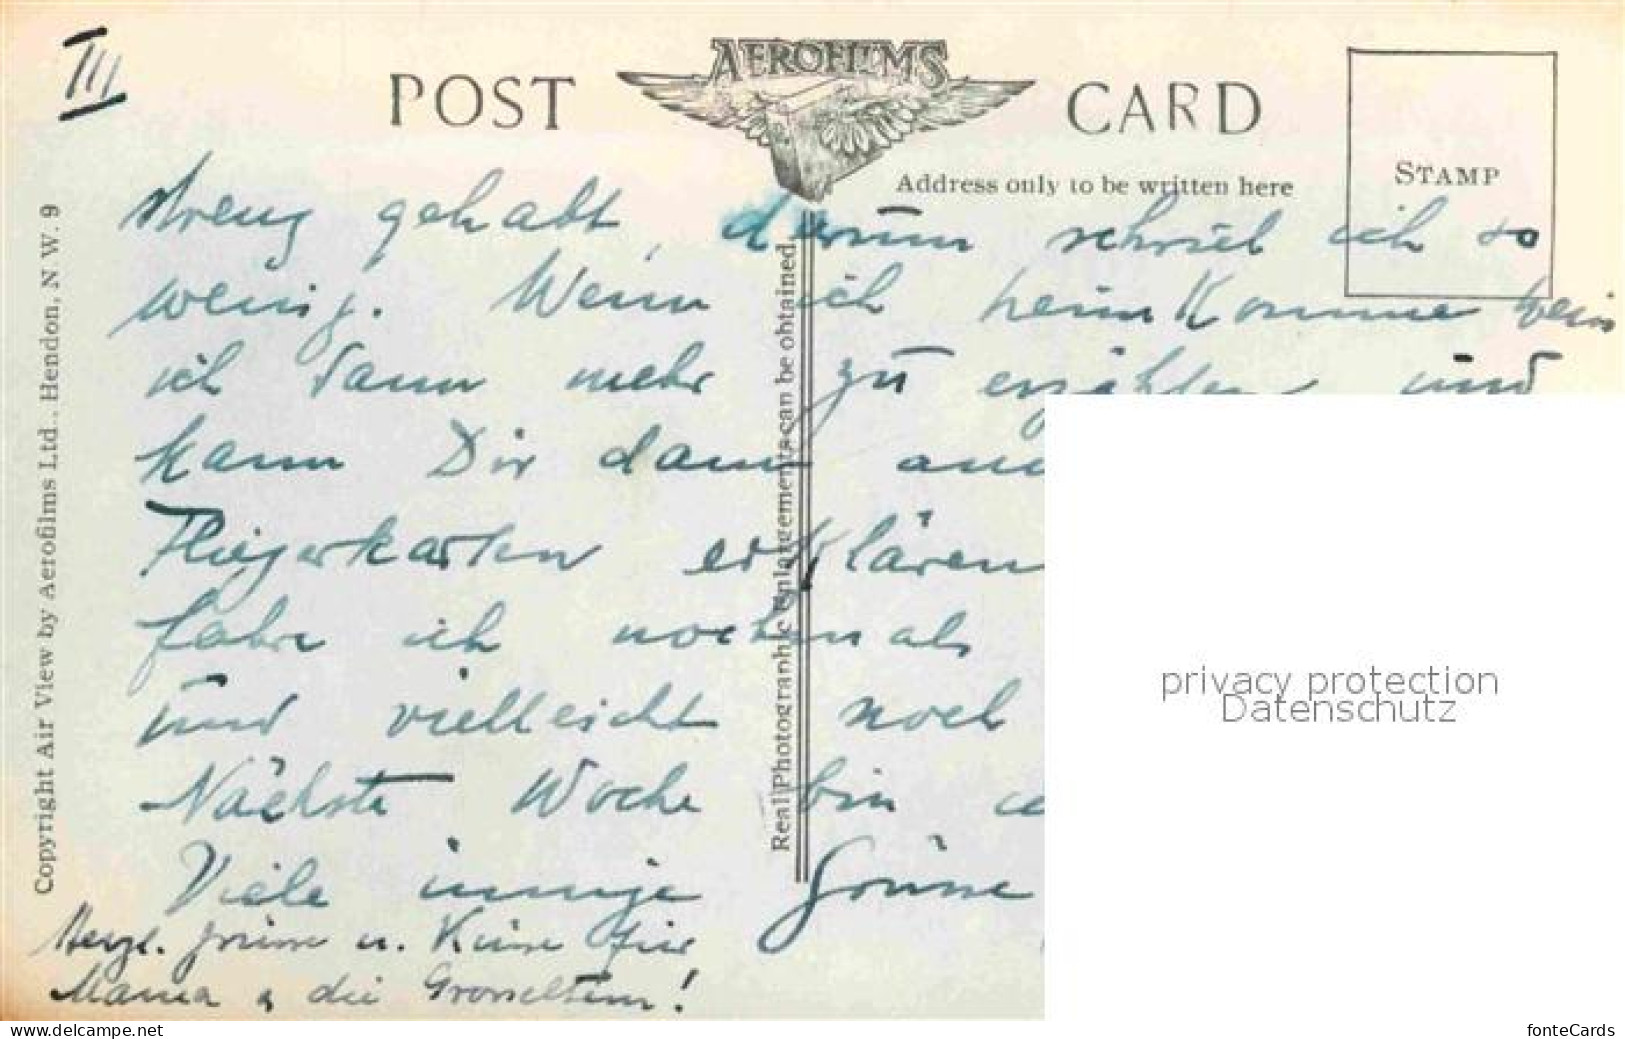 III
POST
AEROFILMS
CARD
STAMP
Address only to be written here
Copyright Air View by Aerofilms Ltd., Hendon, N W. 9
Real Photographic Enlargements can be obtained.
streng gehabt, darum schrieb ich so
wenig. Wenn ich heim komme weiss
ich dann mehr zu erzählen und
kann Dir dann
Fliegerkarten erklären
fahre ich nochmals
und vielleicht noch
Nächste Woche bin
Viele innige Grüsse
Herzl. Grüsse u. Küsse für
Mama & die Grosseltern!
privacy protection
Datenschutz
www.delcampe.net
fonteCards